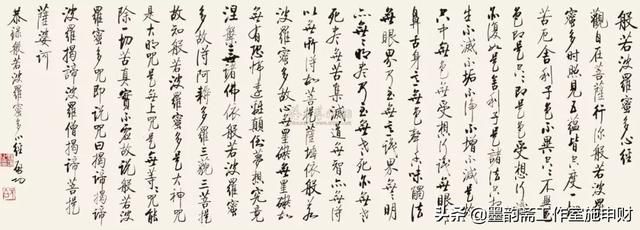 般若波羅蜜多心經
觀自在菩薩行深般若波羅
蜜多時照見五蘊皆空度一切
苦厄舍利子色不異空空不異
色色即是空空即是色受想行識
亦復如是舍利子是諸法空相不
生不滅不垢不淨不增不減是故
空中無色無受想行識無眼耳
鼻舌身意無色聲香味觸法
無眼界乃至無意識界無無明
亦無無明盡乃至無老死亦無老
死盡無苦集滅道無智亦無得
以無所得故菩提薩埵依般若
波羅蜜多故心無罣礙無罣礙故
無有恐怖遠離顛倒夢想究竟
涅槃三世諸佛依般若波羅蜜
多故得阿耨多羅三藐三菩提
故知般若波羅蜜多是大神咒
是大明咒是無上咒是無等等咒能
除一切苦真實不虛故說般若波
羅蜜多咒即說咒曰揭諦揭諦
波羅揭諦波羅僧揭諦菩提
薩婆訶
恭錄般若波羅蜜多心經 啟功
头条 @墨韵斋工作室施申财